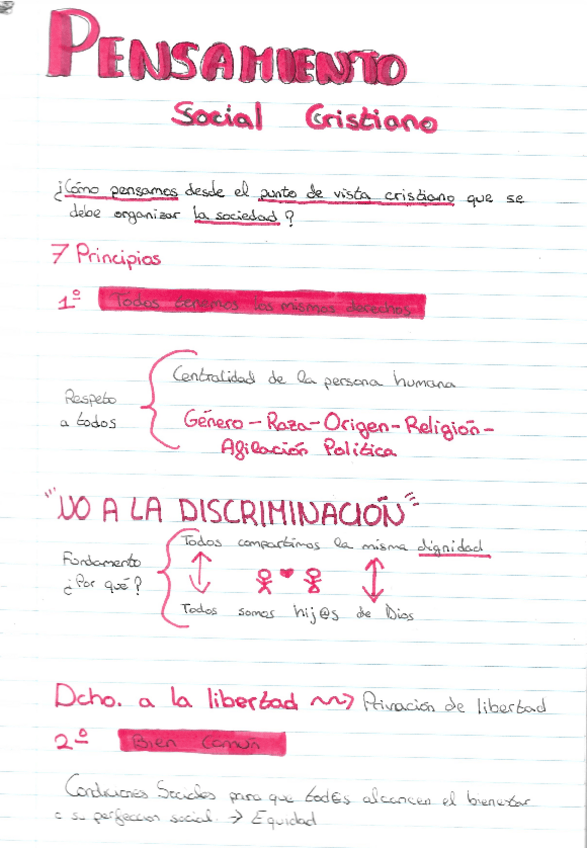 PENSAMIENTO
Social Cristiano
¿Cómo pensamos desde el punto de vista cristiano que se
debe organizar la sociedad?
7 Principios
1º Todos tenemos los mismos derechos
Centralidad de la persona humana
Respeto
a todos
Género - Raza - Origen - Religión -
Afilación Política
"NO A LA DISCRIMINACIÓN"
Todos compartimos la misma dignidad
Fundamento
¿Por qué?
Todos somos hij@s de Dios
Dcho. a la libertad ~~> Privación de libertad
2º Bien Común
Condiciones Sociales para que tod@s alcancen el bienestar
o su perfeccion social. → Equidad